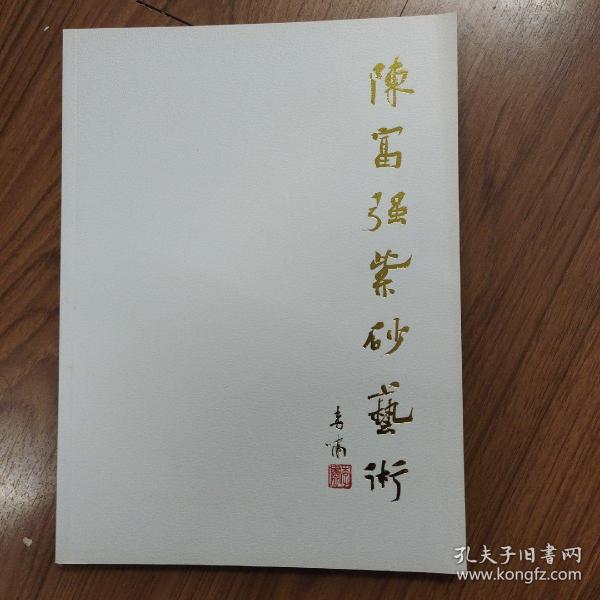 陳富强紫砂藝術
孔夫子旧書网
www.kongfz.com